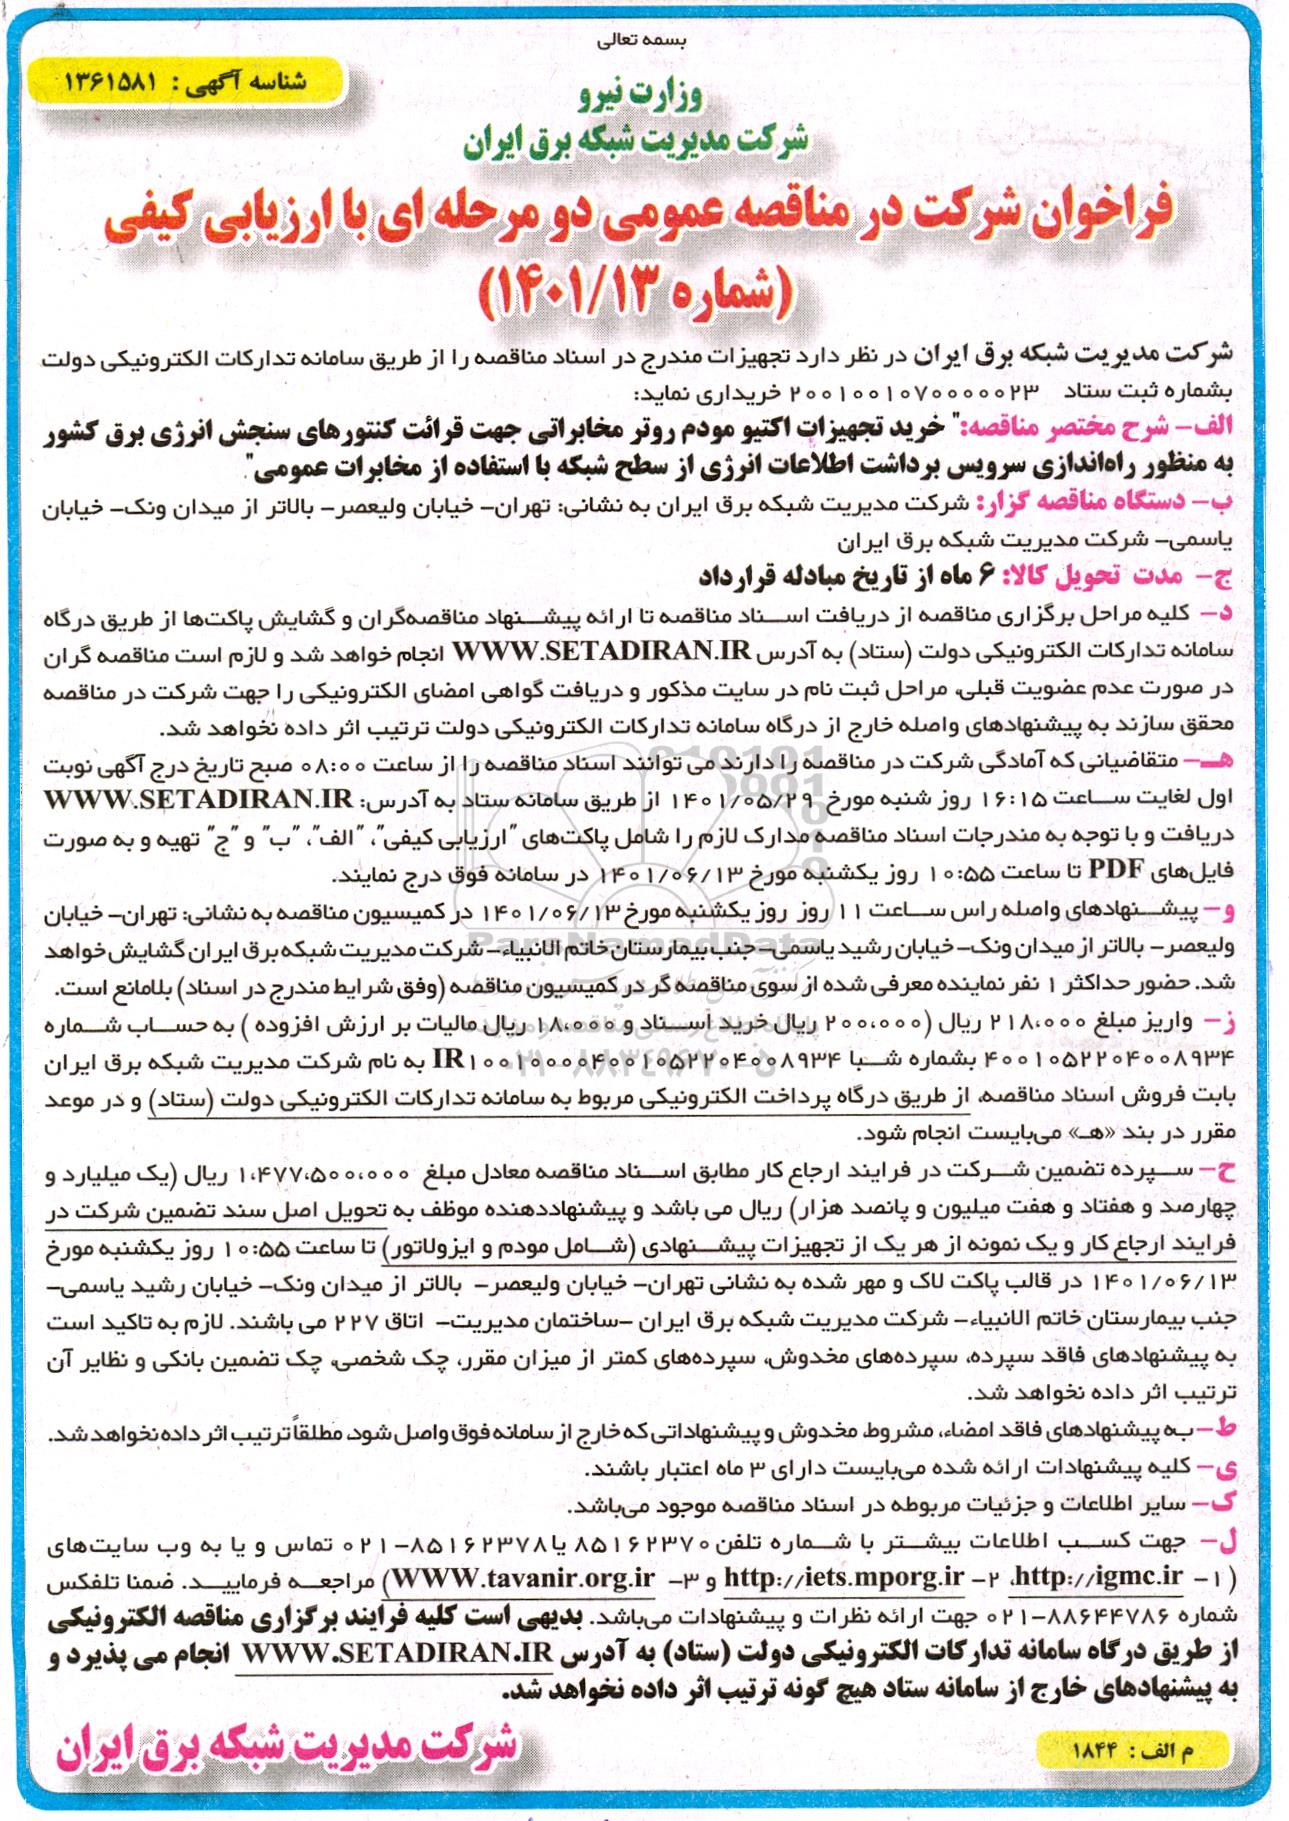 بسمه تعالی
شناسه آگهی : ۱۳۶۱۵۸۱
وزارت نیرو
شرکت مدیریت شبکه برق ایران
فراخوان شرکت در مناقصه عمومی دو مرحله ای با ارزیابی کیفی
(شماره ۱۴۰۱/۱۳)
شرکت مدیریت شبکه برق ایران در نظر دارد تجهیزات مندرج در اسناد مناقصه را از طریق سامانه تدارکات الکترونیکی دولت
بشماره ثبت ستاد ۲۰۰۱۰۰۱۰۷۰۰۰۰۰۲۳ خریداری نماید:
الف- شرح مختصر مناقصه:" خرید تجهیزات اکتیو مودم روتر مخابراتی جهت قرائت کنتورهای سنجش انرژی برق کشور
به منظور راه‌اندازی سرویس برداشت اطلاعات انرژی از سطح شبکه با استفاده از مخابرات عمومی".
ب- دستگاه مناقصه گزار: شرکت مدیریت شبکه برق ایران به نشانی: تهران- خیابان ولیعصر- بالاتر از میدان ونک- خیابان
یاسمی- شرکت مدیریت شبکه برق ایران
ج- مدت تحویل کالا: ۶ ماه از تاریخ مبادله قرارداد
د- کلیه مراحل برگزاری مناقصه از دریافت اسناد مناقصه تا ارائه پیشنهاد مناقصه‌گران و گشایش پاکت‌ها از طریق درگاه
سامانه تدارکات الکترونیکی دولت (ستاد) به آدرس WWW.SETADIRAN.IR انجام خواهد شد و لازم است مناقصه گران
در صورت عدم عضویت قبلی، مراحل ثبت نام در سایت مذکور و دریافت گواهی امضای الکترونیکی را جهت شرکت در مناقصه
محقق سازند به پیشنهادهای واصله خارج از درگاه سامانه تدارکات الکترونیکی دولت ترتیب اثر داده نخواهد شد.
هـ- متقاضیانی که آمادگی شرکت در مناقصه را دارند می توانند اسناد مناقصه را از ساعت ۰۸:۰۰ صبح تاریخ درج آگهی نوبت
اول لغایت ساعت ۱۶:۱۵ روز شنبه مورخ ۱۴۰۱/۰۵/۲۹ از طریق سامانه ستاد به آدرس: WWW.SETADIRAN.IR
دریافت و با توجه به مندرجات اسناد مناقصه مدارک لازم را شامل پاکت‌های "ارزیابی کیفی"، "الف"، "ب" و "ج" تهیه و به صورت
فایل‌های PDF تا ساعت ۱۰:۵۵ روز یکشنبه مورخ ۱۴۰۱/۰۶/۱۳ در سامانه فوق درج نمایند.
و- پیشنهادهای واصله راس ساعت ۱۱ روز روز یکشنبه مورخ ۱۴۰۱/۰۶/۱۳ در کمیسیون مناقصه به نشانی: تهران- خیابان
ولیعصر- بالاتر از میدان ونک- خیابان رشید یاسمی- جنب بیمارستان خاتم الانبیاء- شرکت مدیریت شبکه برق ایران گشایش خواهد
شد. حضور حداکثر ۱ نفر نماینده معرفی شده از سوی مناقصه گر در کمیسیون مناقصه (وفق شرایط مندرج در اسناد) بلامانع است.
ز- واریز مبلغ ۲۱۸،۰۰۰ ریال (۲۰۰،۰۰۰ ریال خرید اسناد و ۱۸،۰۰۰ ریال مالیات بر ارزش افزوده ) به حساب شماره
۴۰۰۱۰۵۲۲۰۴۰۰۸۹۳۴ بشماره شبا IR۱۰۰۱۰۰۰۰۴۰۰۱۰۵۲۲۰۴۰۰۸۹۳۴ به نام شرکت مدیریت شبکه برق ایران
بابت فروش اسناد مناقصه، از طریق درگاه پرداخت الکترونیکی مربوط به سامانه تدارکات الکترونیکی دولت (ستاد) و در موعد
مقرر در بند «هـ» می‌بایست انجام شود.
ح- سپرده تضمین شرکت در فرایند ارجاع کار مطابق اسناد مناقصه معادل مبلغ ۱،۴۷۷،۵۰۰،۰۰۰ ریال (یک میلیارد و
چهارصد و هفتاد و هفت میلیون و پانصد هزار) ریال می باشد و پیشنهاددهنده موظف به تحویل اصل سند تضمین شرکت در
فرایند ارجاع کار و یک نمونه از هر یک از تجهیزات پیشنهادی (شامل مودم و ایزولاتور) تا ساعت ۱۰:۵۵ روز یکشنبه مورخ
۱۴۰۱/۰۶/۱۳ در قالب پاکت لاک و مهر شده به نشانی تهران- خیابان ولیعصر- بالاتر از میدان ونک- خیابان رشید یاسمی-
جنب بیمارستان خاتم الانبیاء- شرکت مدیریت شبکه برق ایران -ساختمان مدیریت- اتاق ۲۲۷ می باشند. لازم به تاکید است
به پیشنهادهای فاقد سپرده، سپرده‌های مخدوش، سپرده‌های کمتر از میزان مقرر، چک شخصی، چک تضمین بانکی و نظایر آن
ترتیب اثر داده نخواهد شد.
ط- به پیشنهادهای فاقد امضاء، مشروط، مخدوش و پیشنهاداتی که خارج از سامانه فوق واصل شود، مطلقاً ترتیب اثر داده نخواهد شد.
ی- کلیه پیشنهادات ارائه شده می‌بایست دارای ۳ ماه اعتبار باشند.
ک- سایر اطلاعات و جزئیات مربوطه در اسناد مناقصه موجود می‌باشد.
ل- جهت کسب اطلاعات بیشتر با شماره تلفن ۸۵۱۶۲۳۷۰ یا ۸۵۱۶۲۳۷۸-۰۲۱ تماس و یا به وب سایت‌های
( ۱- http://igmc.ir، ۲- http://iets.mporg.ir و ۳- WWW.tavanir.org.ir) مراجعه فرمایید. ضمنا تلفکس
شماره ۸۸۶۴۴۷۸۶-۰۲۱ جهت ارائه نظرات و پیشنهادات می‌باشد. بدیهی است کلیه فرایند برگزاری مناقصه الکترونیکی
از طریق درگاه سامانه تدارکات الکترونیکی دولت (ستاد) به آدرس WWW.SETADIRAN.IR انجام می پذیرد و
به پیشنهادهای خارج از سامانه ستاد هیچ گونه ترتیب اثر داده نخواهد شد.
شرکت مدیریت شبکه برق ایران
م الف : ۱۸۴۴